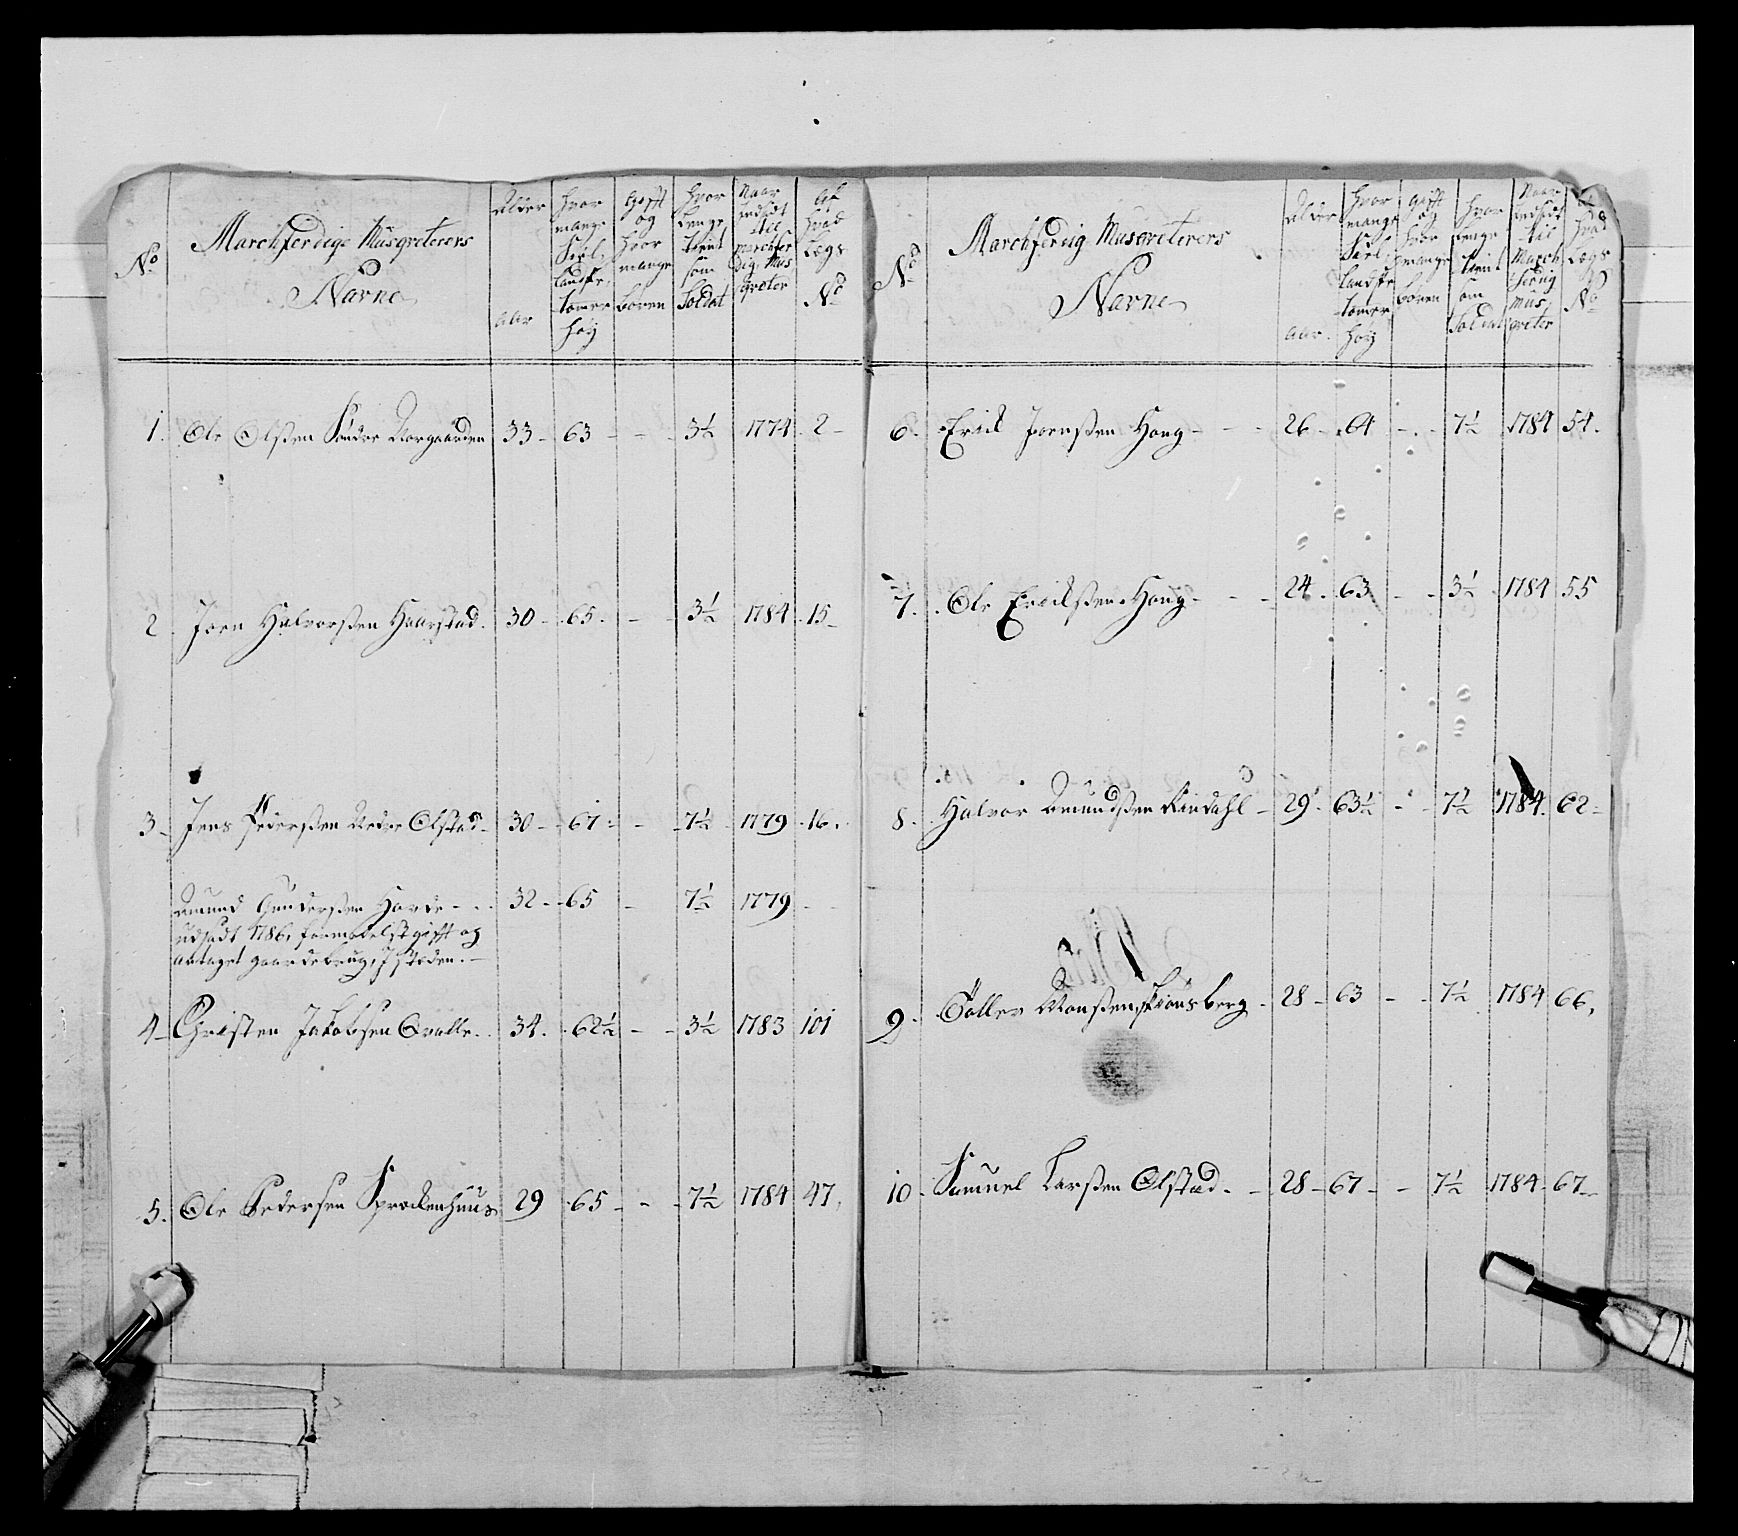 No
Marchferdige Musqreterers
Navne
Alder
aar
hvor
mange
Siel,
landske,
tomer
høy
gifft
og
hvor
mange
børen
hvor
lenge
tient
som
Soldat
Naar
indsadt
til
marchfer
dig Mus
qveter
af
hvad
Legs
No
1. Ole Olsßen Søndre Norgaarden 33 - 63 - - 3½ 1774 2 -
2. Joen Halvorsßen Haarstad. 30 - 65. - - 3½ 1784 15 -
3. Jens Pedersßen Nedre Olstad - 30 - 67 - - 7½ 1779 16.
Amund Gundersßen Hovde - - 32 - 65 - 7½ 1779 - -
udsadt 1786, formedelst gifft og
antaget gaardebrug, J steden. -
4 - Christen Jakobsen Qvalle. 34. 62½ - - 3½ 1783 101
5. Ole Pedersen Sprækenhuus 29 65 - - 7½ 1784 47.
No
Marchferdig Musqveterers
Navne
Alder
aar.
hvor
mange
Siel,
landske
tomer
høy
gifft
og
hvor
mange
børen
hvor
lenge
tient
som
Soldat
Naar
indsadt
til
March
ferdig
Mus,
qveter
af
hvad
Legs
No
6. Erick Joensßen Houg - - - 26 - 64 - - 7½ 1784 54.
7. Ole Ericksßen Houg - - - 24. 63 - - 3½ 1784 55
8. Halvor Amundsßen Rindahl - 29. 63½ - - 7½ 1784. 62 -
9. Tollev Monsßen Kronsberg - 28 - 63 - - 7½ 1784 66.
10. Samuel Larsßen Olstad. - 28 - 67 - - 7½ 1784 - 67 -